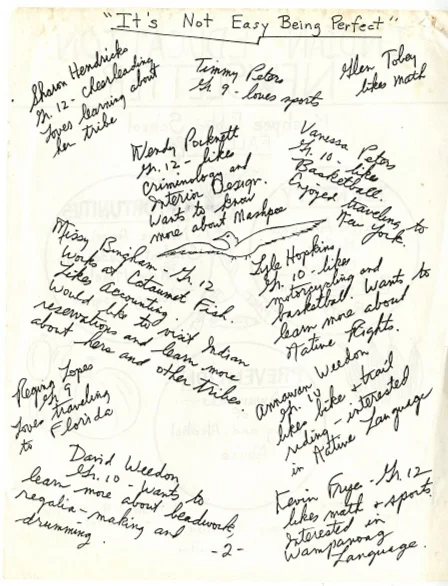 "It's Not Easy Being Perfect"
Sharon Hendricks
Gr. 12 - cheerleading
loves learning about
her tribe
Timmy Peters
Gr. 9 - loves sports
Glen Tobey
likes math
Wendy Pocknett
Gr. 12 - likes
Criminology and
Interior Design.
Wants to know
more about Mashpee
Vanessa Peters
Gr. 10 - likes
Basketball.
Enjoyed traveling to
New York
Missy Bingham - Gr. 12
Works at Cataumet Fish.
Likes Accounting.
Would like to visit Indian
reservations and learn more
about hers and other tribes.
Lyle Hopkins
Gr. 10 - likes
motorcycling and
basketball. Wants to
learn more about
Native Rights.
Regina Lopes
Gr. 9
loves traveling
to Florida
Annawan Weedon
Gr. 10
likes bike + trail
riding - interested
in Native Language
David Weedon
Gr. 10 - wants to
learn more about beadwork,
regalia-making and
drumming.
Kevin Frye - Gr. 12
likes math + sports.
Interested in
Wampanoag
Language.
-2-